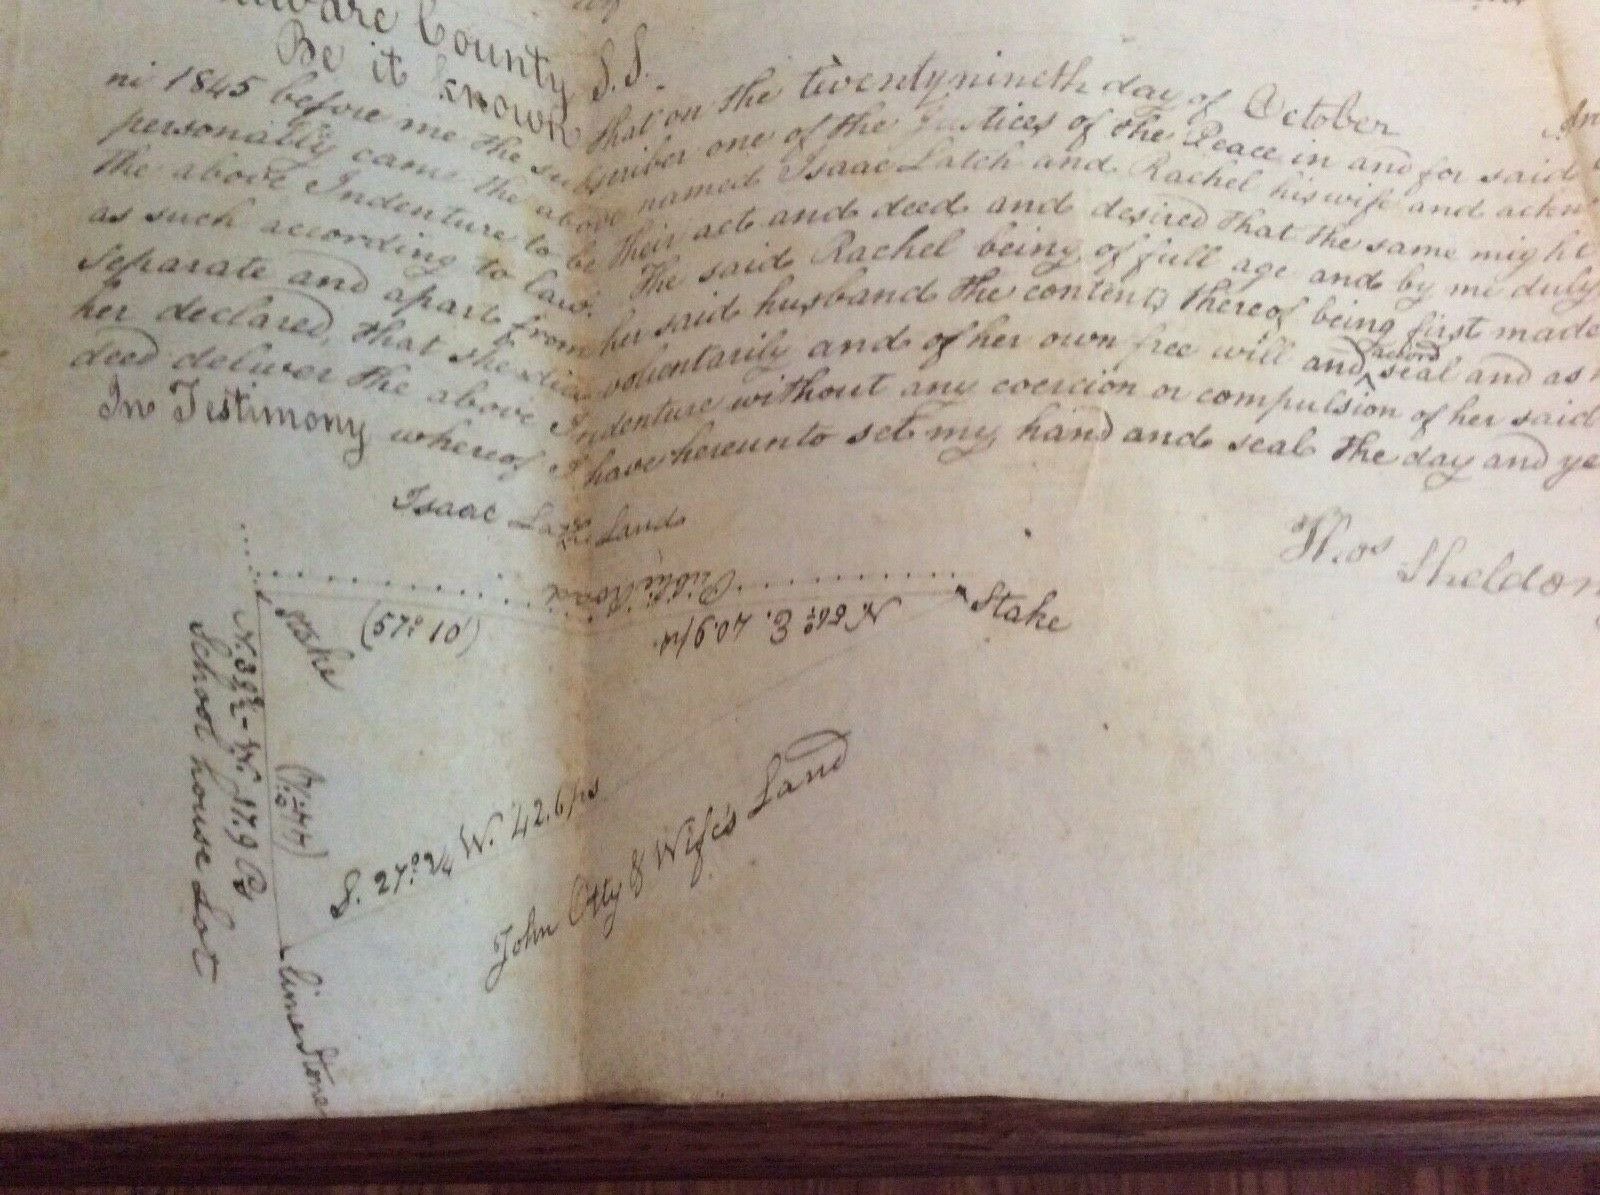 County S.S.
Be it known that on the twentynineth day of October
1845 before me the subscriber one of the Justices of the Peace in and for said
personally came the above named Isaac Latch and Rachel his wife and ackn
the above Indenture to be their act and deed and desired that the same might
as such according to law. The said Rachel being of full age and by me duly
separate and apart from her said husband the contents thereof being first made
her declared, that she did voluntarily and of her own free will and accord seal and as
deed deliver the above Indenture without any coercion or compulsion of her said
In Testimony whereof I have hereunto set my hand and seal the day and ye
Thos Sheldon
Isaac Latch Land
Public Road
Stake
(57° 10')
N. 56° E. 40.9 ps.
Stake
N. 32° ¾ W. 17.9 Ps
School house Lot
S. 27° ¾ W. 42.6 ps
John Otty & Wife's Land
limestone